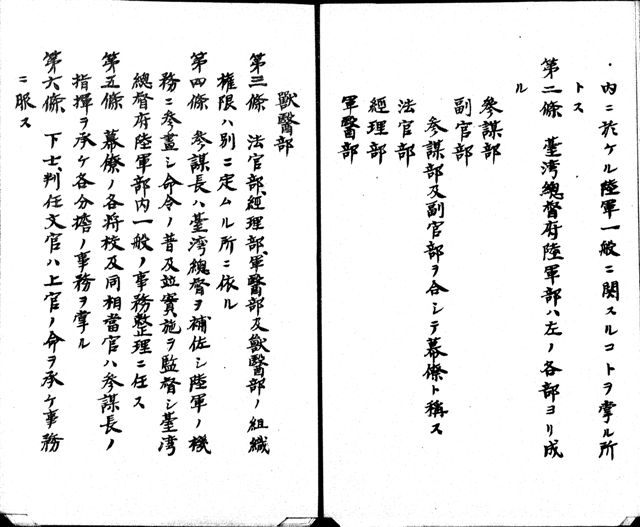 内ニ於ケル陸軍一般ニ関スルコトヲ掌ル所
トス
第二條　臺湾總督府陸軍部ハ左ノ各部ヨリ成
ル
參謀部
副官部
參謀部及副官部ヲ合シテ幕僚ト稱ス
法官部
經理部
軍醫部
獸醫部
第三條　法官部、經理部、軍醫部及獸醫部ノ組織
權限ハ別ニ定ムル所ニ依ル
第四條　參謀長ハ臺湾總督ヲ補佐シ陸軍ノ機
務ニ參畫シ命令ノ普及竝實施ヲ監督シ臺湾
總督府陸軍部内一般ノ事務整理ニ任ス
第五條　幕僚ノ各将校及同相當官ハ參謀長ノ
指揮ヲ承ケ各分擔ノ事務ヲ掌ル
第六條　下士、判任文官ハ上官ノ命ヲ承ケ事務
ニ服ス